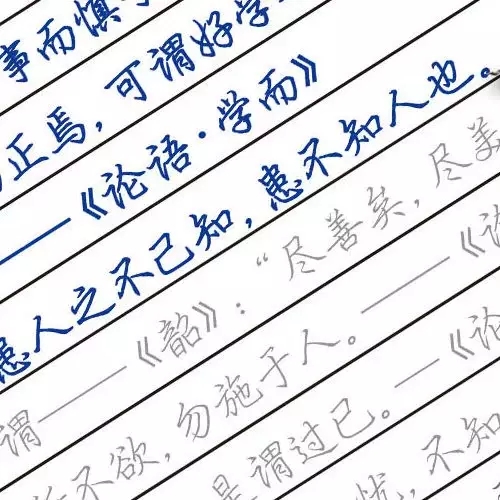 事而慎
正焉，可谓好学
——《论语·学而》
患人之不己知，患不知人也。
谓——《韶》：“尽善矣，尽美
不欲，勿施于人。——《论
是谓过已。—《论
忧，不知